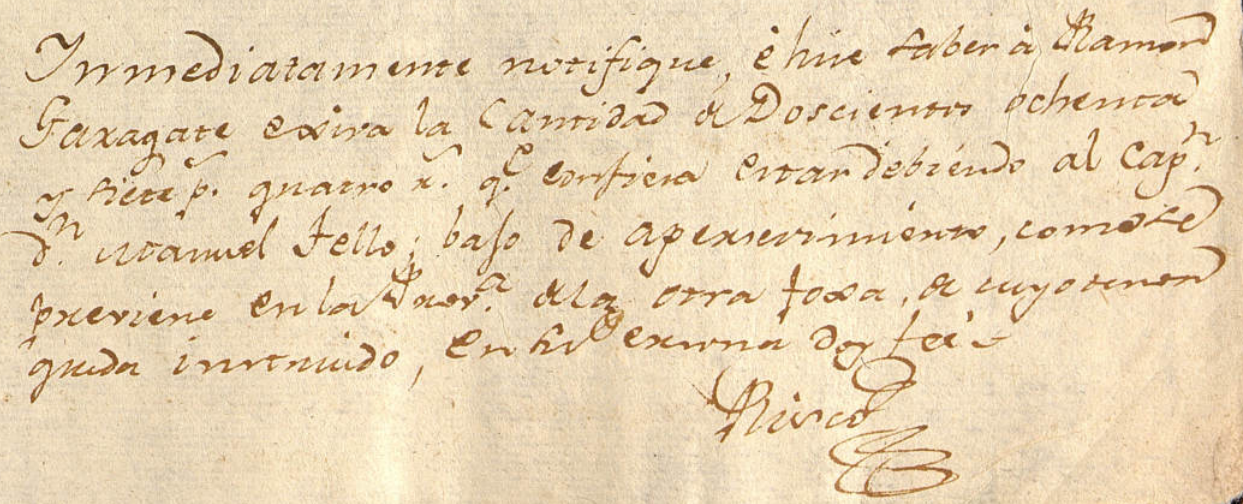 Inmediatamente notifique, è hiie saber à Ramon
Faxagate exiva la Cantidad de Doscientos ochenta
y siete p.s quatro r.s q.e confiesa estar debiendo al Cap.n
d.n Manuel Tello, baxo de apexsevimiento, como se
previene en la Prov.a de la otra foxa, de cuyo tenor
queda instruido, en su persona doy feè
Risco